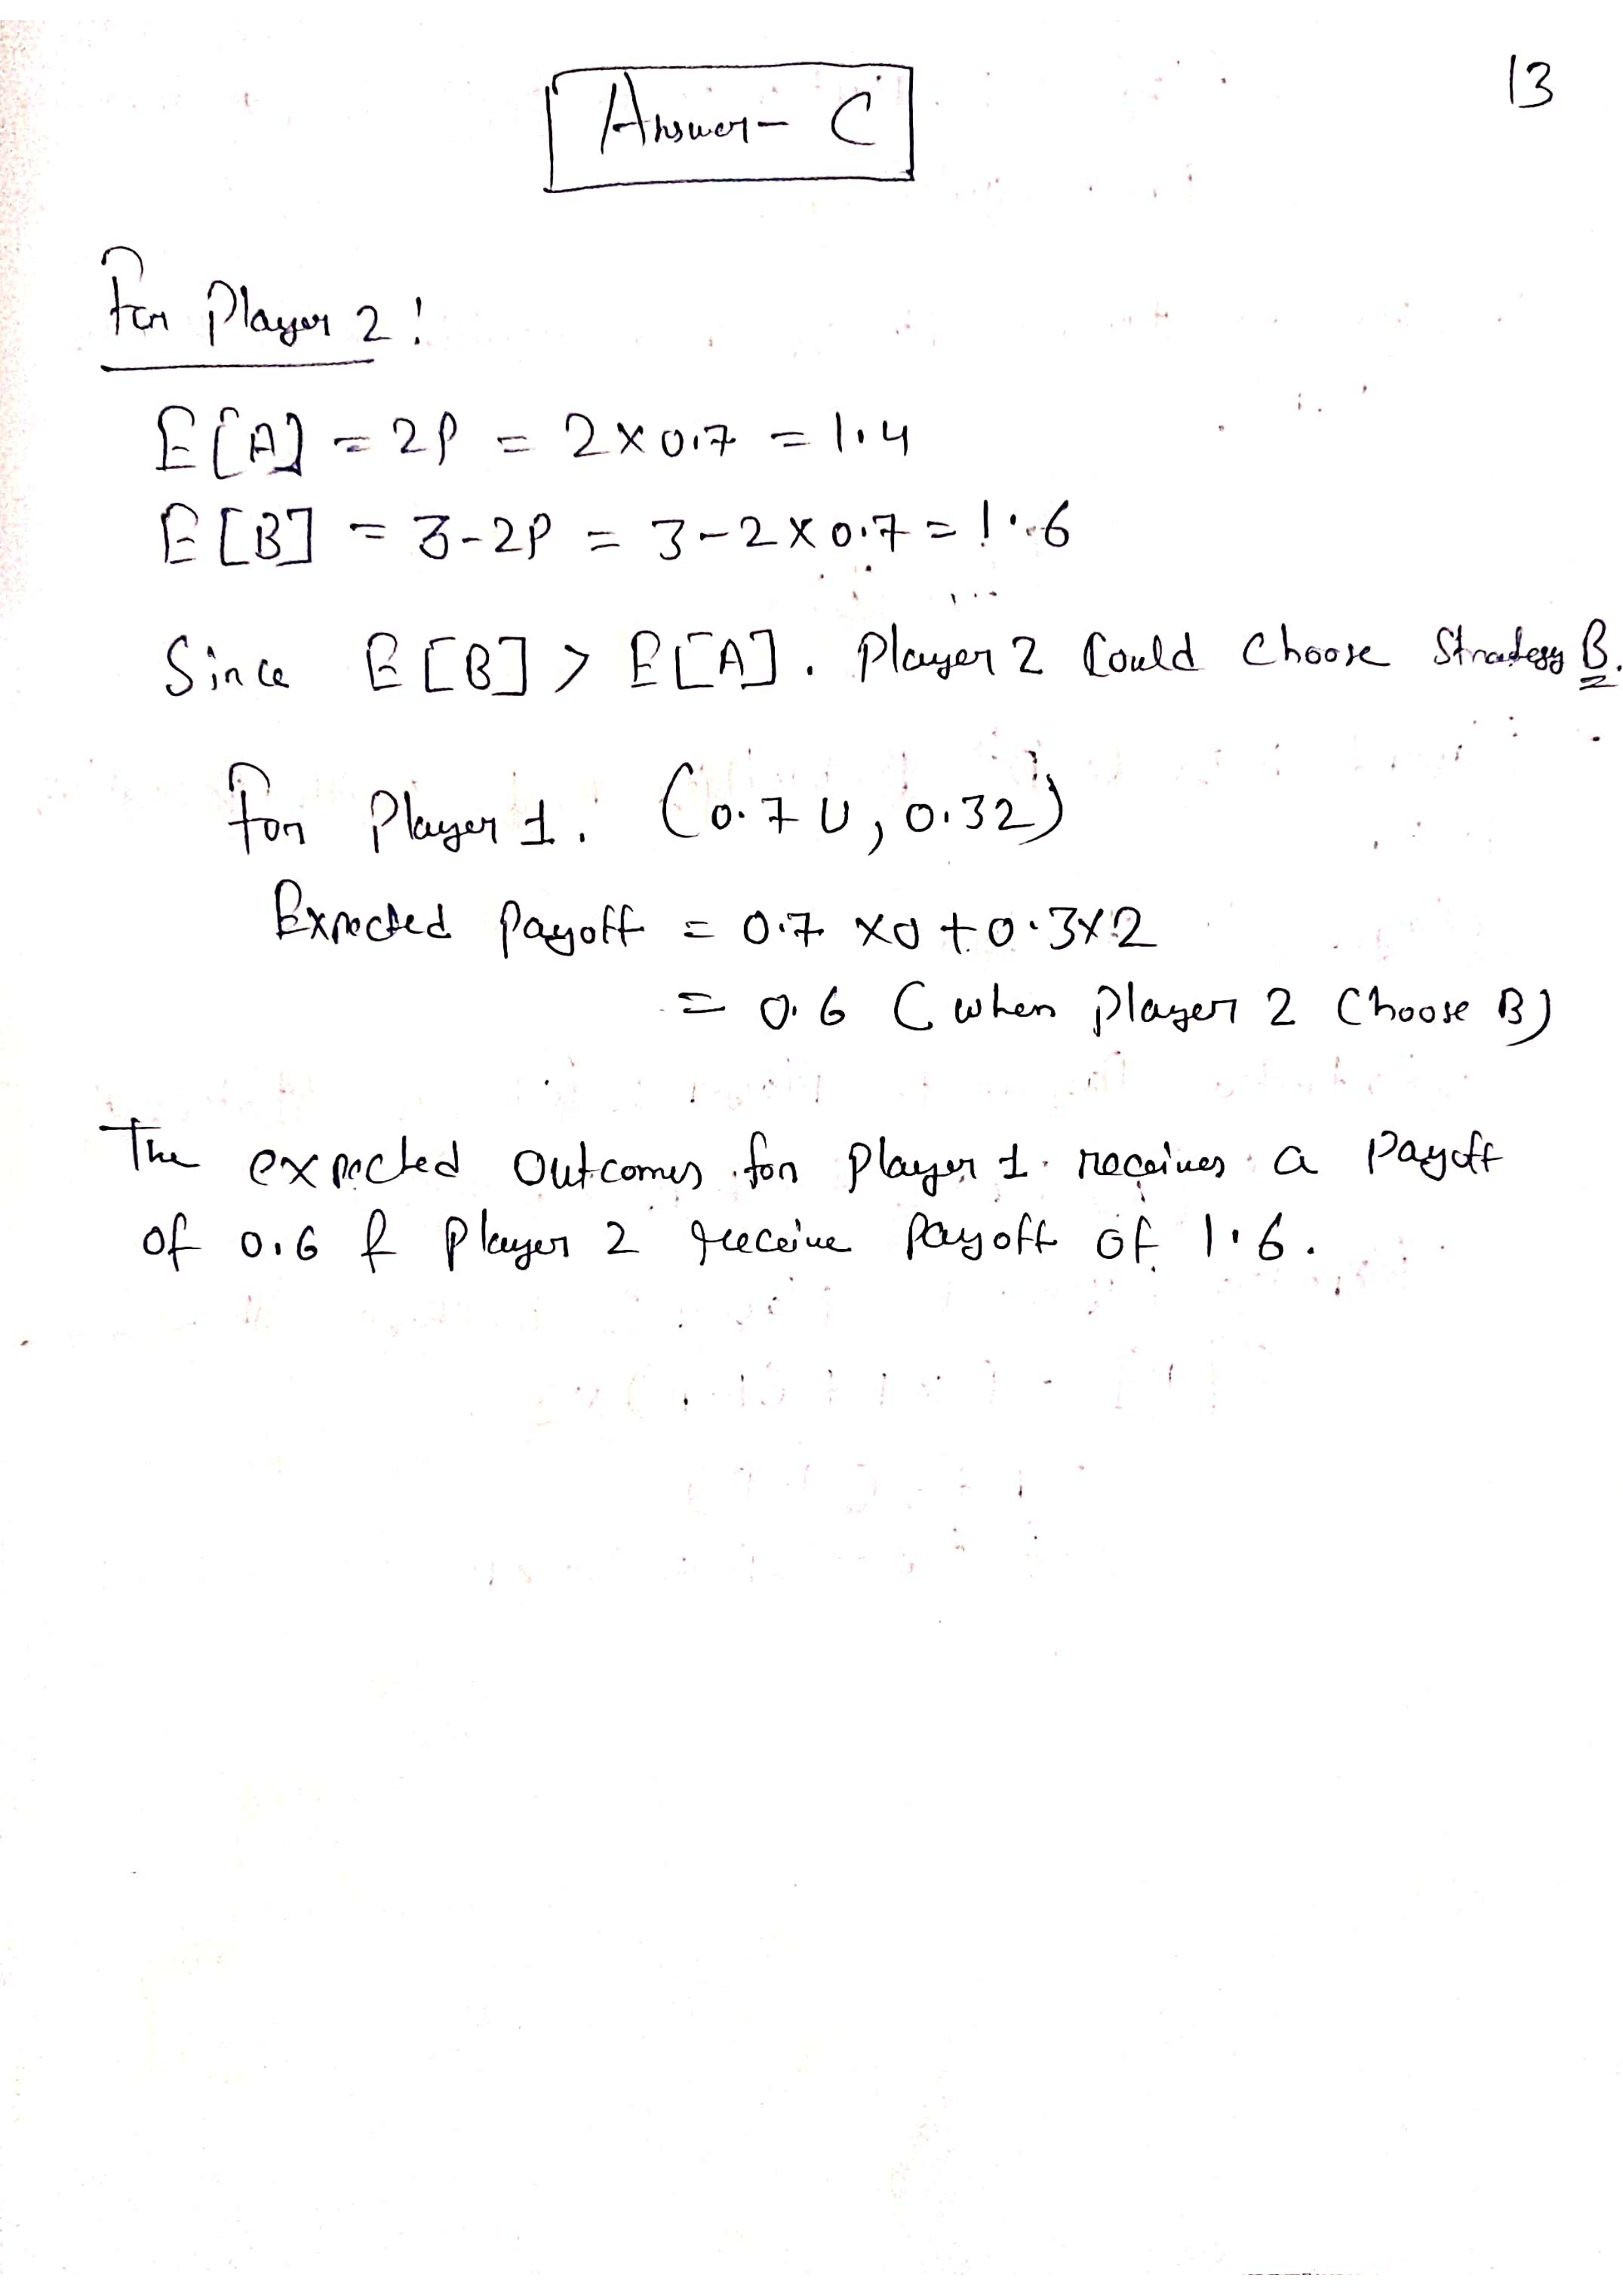 13
Answer - C
For Player 2:
E[A] = 2P = 2×0.7 = 1.4
E[B] = 3-2P = 3-2×0.7 = 1.6
Since E[B] > E[A]. Player 2 Could Choose Strategy B.
For Player 1. (0.7 U, 0.32)
Expected Payoff = 0.7 ×0 + 0.3×2
= 0.6 (when Player 2 Choose B)
The expected outcomes for player 1 receives a Payoff
of 0.6 & Player 2 receive Payoff of 1.6.